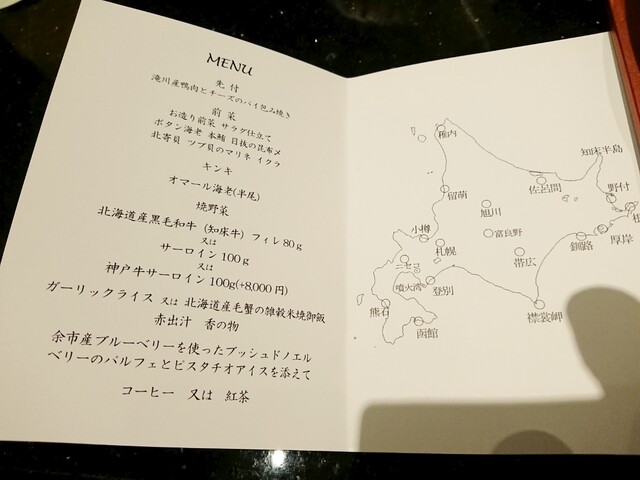 MENU
先 付
滝川産鴨肉とチーズのパイ包み焼き
前 菜
お造り前菜 サラダ仕立て
ボタン海老 本鮪 目抜の昆布〆
北寄貝 ツブ貝のマリネ イクラ
キンキ
オマール海老(半尾)
焼野菜
北海道産黒毛和牛 (知床牛) フィレ80g
又は
サーロイン100g
又は
神戸牛サーロイン100g(+8,000円)
ガーリックライス 又は 北海道産毛蟹の雑穀米焼御飯
赤出汁 香の物
余市産ブルーベリーを使ったブッシュドノエル
ベリーのパルフェとピスタチオアイスを添えて
コーヒー 又は 紅茶
稚内
知床半島
留萌
佐呂間
野付
旭川
小樽
富良野
厚岸
札幌
釧路
帯広
ニセコ
噴火湾
登別
熊石
襟裳岬
函館